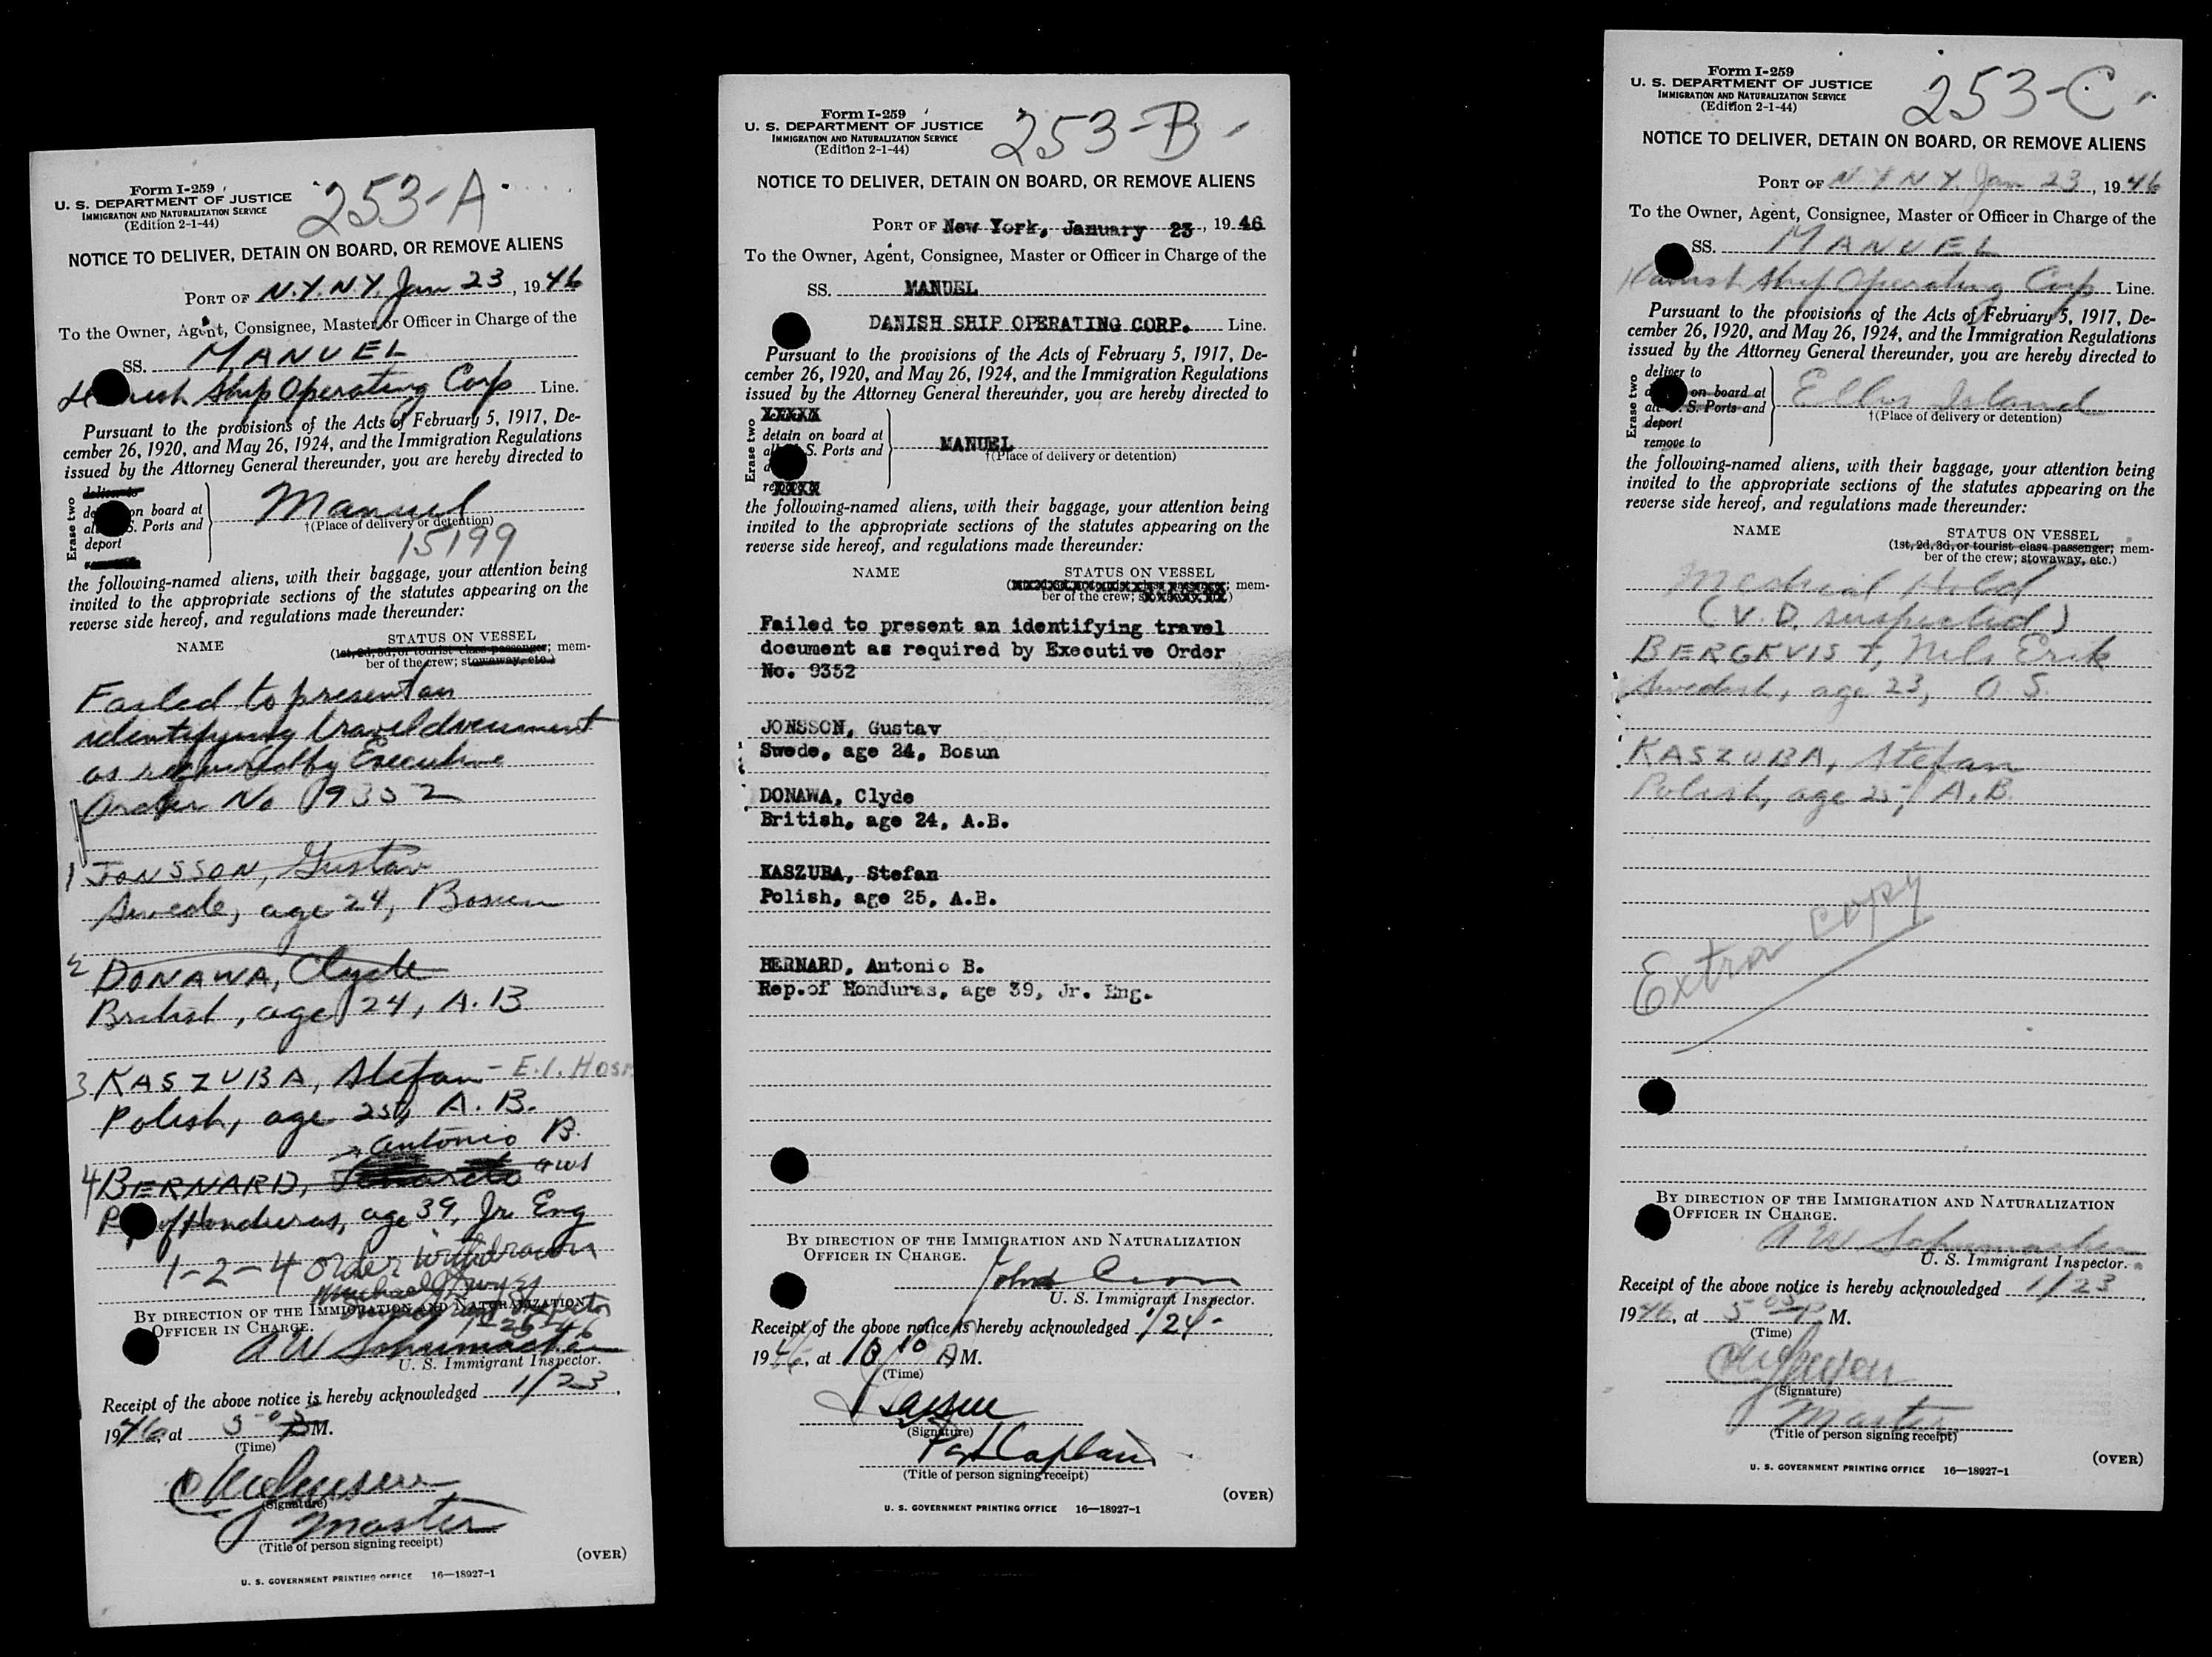 Form I-259
U. S. DEPARTMENT OF JUSTICE
IMMIGRATION AND NATURALIZATION SERVICE
(Edition 2-1-44)
253-A
NOTICE TO DELIVER, DETAIN ON BOARD, OR REMOVE ALIENS
PORT OF N.Y.N.Y. Jan 23, 1946
To the Owner, Agent, Consignee, Master or Officer in Charge of the
SS. MANUEL
Ship Operating Corp Line.
Pursuant to the provisions of the Acts of February 5, 1917, De-
cember 26, 1920, and May 26, 1924, and the Immigration Regulations
issued by the Attorney General thereunder, you are hereby directed to
Erase two
deliver to
on board at
S. Ports and
deport
Manuel
†(Place of delivery or detention)
15199
the following-named aliens, with their baggage, your attention being
invited to the appropriate sections of the statutes appearing on the
reverse side hereof, and regulations made thereunder:
NAME
STATUS ON VESSEL
(1st, 2d, 3d, or tourist class passenger; mem-
ber of the crew; stowaway, etc.)
Failed to present an
identifying travel document
as required by Executive
Order No 9352
1 JONSSON, Gustav
Swede, age 24, Bosun
2 DONAWA, Clyde
British, age 24, A.B
3 KASZUBA, Stefan - E.I. HOSP
Polish, age 25, A.B.
Antonio B.
4 BERNARD,
of Honduras, age 39, Jr Eng
1-2-4 order withdrawn
Michael
Inspector
1-26-46
BY DIRECTION OF THE IMMIGRATION AND NATURALIZATION
OFFICER IN CHARGE.
A W Schumacher
U. S. Immigrant Inspector.
Receipt of the above notice is hereby acknowledged 1/23,
1946, at 5-05 P M.
(Time)
(Signature)
Master
(Title of person signing receipt)
(OVER)
U. S. GOVERNMENT PRINTING OFFICE 16—18927-1
Form I-259
U. S. DEPARTMENT OF JUSTICE
IMMIGRATION AND NATURALIZATION SERVICE
(Edition 2-1-44)
253-B
NOTICE TO DELIVER, DETAIN ON BOARD, OR REMOVE ALIENS
PORT OF New York, January 23, 1946
To the Owner, Agent, Consignee, Master or Officer in Charge of the
SS. MANUEL
DANISH SHIP OPERATING CORP. Line.
Pursuant to the provisions of the Acts of February 5, 1917, De-
cember 26, 1920, and May 26, 1924, and the Immigration Regulations
issued by the Attorney General thereunder, you are hereby directed to
Erase two
XXXXX
detain on board at
S. Ports and
XXXX
MANUEL
†(Place of delivery or detention)
the following-named aliens, with their baggage, your attention being
invited to the appropriate sections of the statutes appearing on the
reverse side hereof, and regulations made thereunder:
NAME
STATUS ON VESSEL
mem-
ber of the crew;
Failed to present an identifying travel
document as required by Executive Order
No. 9352
JONSSON, Gustav
Swede, age 24, Bosun
DONAWA, Clyde
British, age 24, A.B.
KASZUBA, Stefan
Polish, age 25, A.B.
BERNARD, Antonio B.
Rep.of Honduras, age 39, Jr. Eng.
BY DIRECTION OF THE IMMIGRATION AND NATURALIZATION
OFFICER IN CHARGE.
U. S. Immigrant Inspector.
Receipt of the above notice is hereby acknowledged 1/24-,
1946, at 10 10 A M.
(Time)
(Signature)
Port Captain
(Title of person signing receipt)
(OVER)
U. S. GOVERNMENT PRINTING OFFICE 16—18927-1
Form I-259
U. S. DEPARTMENT OF JUSTICE
IMMIGRATION AND NATURALIZATION SERVICE
(Edition 2-1-44)
253-C
NOTICE TO DELIVER, DETAIN ON BOARD, OR REMOVE ALIENS
PORT OF N Y N Y. Jan 23, 1946
To the Owner, Agent, Consignee, Master or Officer in Charge of the
SS. MANUEL
Danish Ship Operating Corp Line.
Pursuant to the provisions of the Acts of February 5, 1917, De-
cember 26, 1920, and May 26, 1924, and the Immigration Regulations
issued by the Attorney General thereunder, you are hereby directed to
Erase two
deliver to
on board at
S. Ports and
deport
remove to
Ellis Island
†(Place of delivery or detention)
the following-named aliens, with their baggage, your attention being
invited to the appropriate sections of the statutes appearing on the
reverse side hereof, and regulations made thereunder:
NAME
STATUS ON VESSEL
(1st, 2d, 3d, or tourist class passenger; mem-
ber of the crew; stowaway, etc.)
Medical Hold
(V.D. suspected)
BERGKVIST, Nils Erik
Swedish, age 23, O S.
KASZUBA, Stefan
Polish, age 25, A.B.
Extra copy
BY DIRECTION OF THE IMMIGRATION AND NATURALIZATION
OFFICER IN CHARGE.
A W. Schumacher
U. S. Immigrant Inspector.
Receipt of the above notice is hereby acknowledged 1/23,
1946, at 5 05 P M.
(Time)
(Signature)
Master
(Title of person signing receipt)
(OVER)
U. S. GOVERNMENT PRINTING OFFICE 16—18927-1